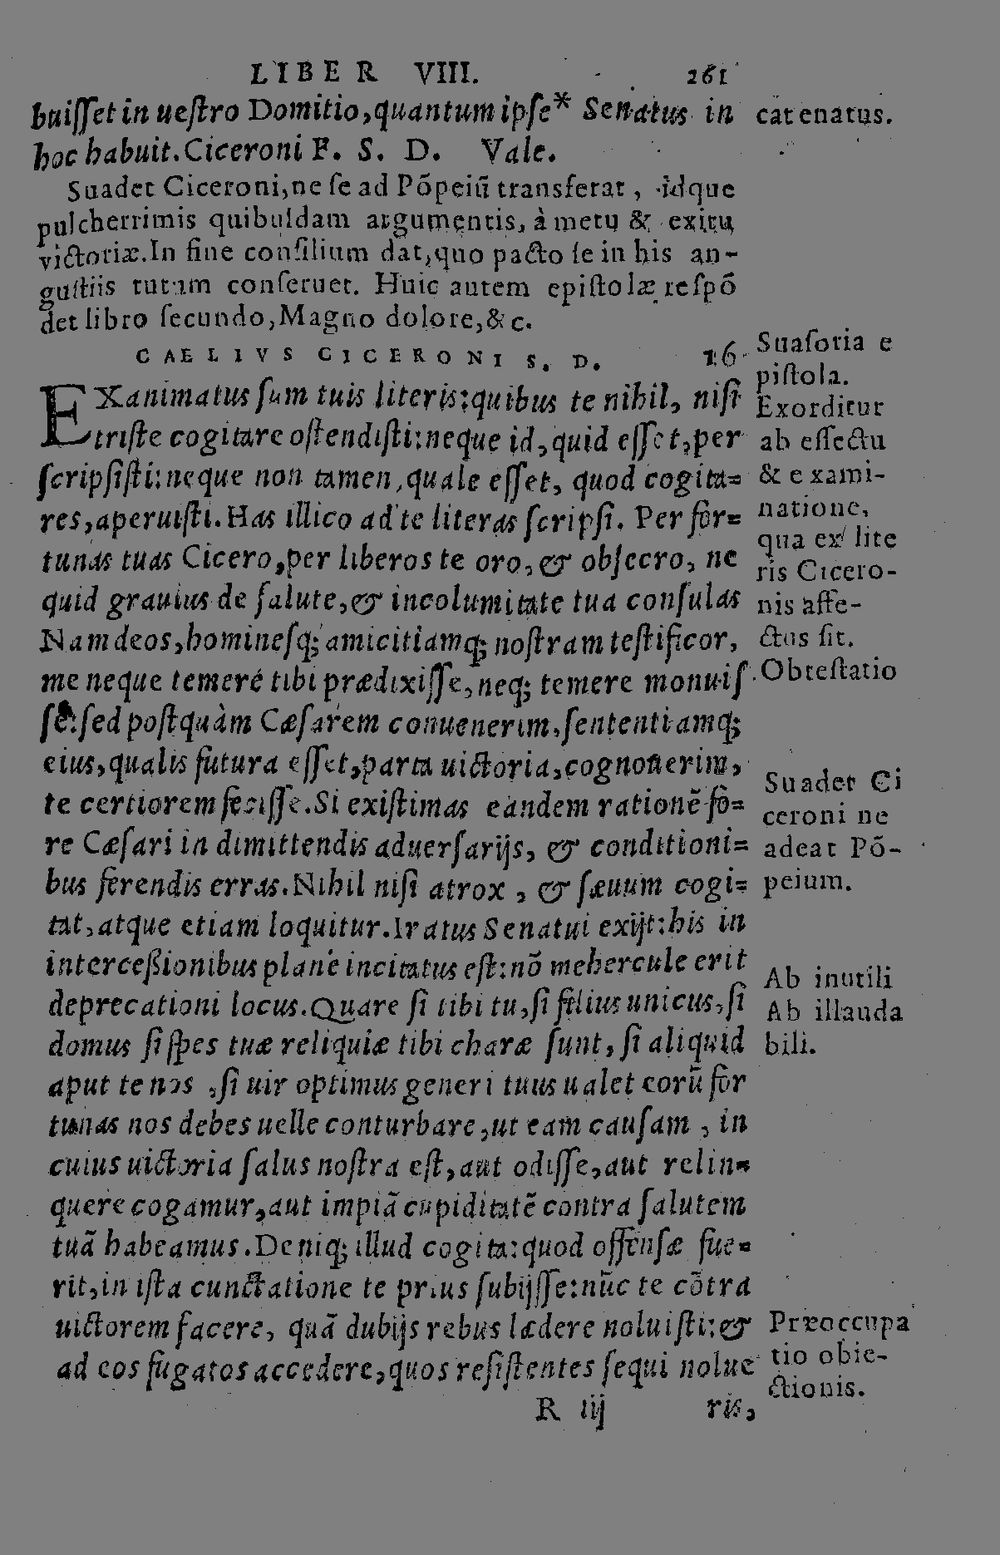 LIBER VIII. 261
buiſſet in ueſtro Domitio, quantum ipſe* Senatus in
catenatus.
hoc habuit. Ciceroni F. S. D. Vale.
Suadet Ciceroni, ne ſe ad Põpeiũ transferat, idque
pulcherrimis quibuſdam argumentis, à metu & exitu
victoriæ. In fine conſilium dat, quo pacto ſe in his an-
guſtiis tutum conſeruet. Huic autem epiſtolæ reſpõ
det libro ſecundo, Magno dolore, &c.
CAELIVS CICERONI S. D. 16
EXanimatus ſum tuis literis: quibus te nihil, niſi
triſte cogitare oſtendiſti: neque id, quid eſſet, per
ſcripſiſti: neque non tamen, quale eſſet, quod cogita=
res, aperuiſti. Has illico ad te literas ſcripſi. Per for=
tunas tuas Cicero, per liberos te oro, & obſecro, ne
quid grauius de ſalute, & incolumitate tua conſulas
Nam deos, homineſq; amicitiamq; noſtram teſtificor,
me neque temeré tibi prædixiſſe, neq; temere monuiſ
ſe: ſed poſtquàm Cæſarem conuenerim, ſententiamq;
eius, qualis futura eſſet, parta uictoria, cognouerim,
te certiorem feciſſe. Si exiſtimas eandem rationẽ fo=
re Cæſari in dimittendis aduerſarijs, & conditioni=
bus ferendis erras. Nihil niſi atrox, & ſæuum cogi=
tat, atque etiam loquitur. Iratus Senatui exijt: his in
interceßionibus planè incitatus eſt: nõ mehercule erit
deprecationi locus. Quare ſi tibi tu, ſi filius unicus, ſi
domus ſi ſpes tuæ reliquiæ tibi charæ ſunt, ſi aliquid
aput te nos, ſi uir optimus generi tuus ualet eorũ for
tunas nos debes uelle conturbare, ut eam cauſam, in
cuius uictoria ſalus noſtra eſt, aut odiſſe, aut relin=
quere cogamur, aut impiã cupiditatẽ contra ſalutem
tuã habeamus. Deniq; illud cogita: quod offenſæ fue=
rit, in iſta cunctatione te prius ſubijſſe: nũc te cõtra
uictorem facere, quã dubijs rebus lædere noluiſti: &
ad eos fugatos accedere, quos reſiſtentes ſequi nolue
R iij ris,
Suaſoria e
piſtola.
Exorditur
ab effectu
& exami-
natione,
qua ex lite
ris Cicero-
nis affe-
ctus ſit.
Obteſtatio
Suadet Ci
ceroni ne
adeat Põ-
peium.
Ab inutili
Ab illauda
bili.
Præoccupa
tio obie-
ctionis.